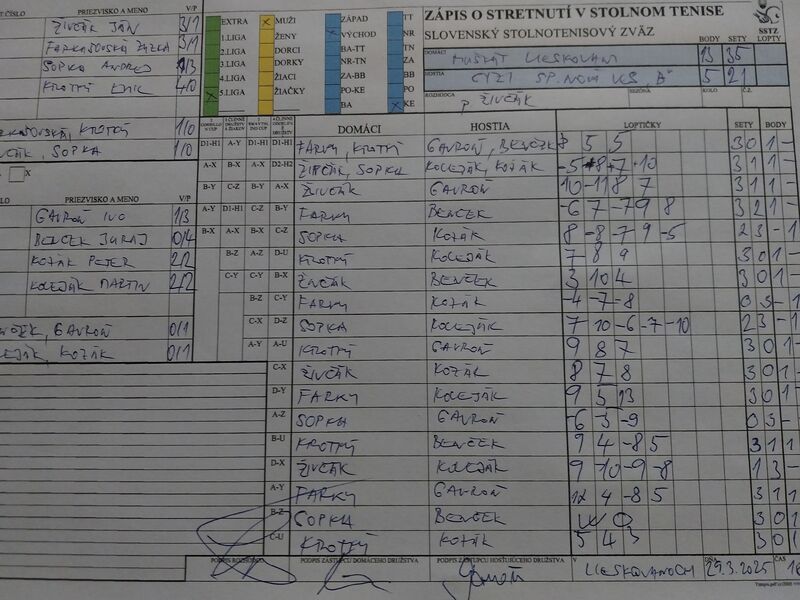 ZÁPIS O STRETNUTÍ V STOLNOM TENISE
SLOVENSKÝ STOLNOTENISOVÝ ZVÄZ
SSTZ
BODY SETY LOPTY
DOMÁCI
13 35
HOSTIA
5 21
ROZHODCA
P. ŽIVČÁK
SEZÓNA KOLO Č.Z.
EXTRA
1.LIGA
2.LIGA
3.LIGA
4.LIGA
5.LIGA
MUŽI
ŽENY
DORCI
DORKY
ŽIACI
ŽIAČKY
ZÁPAD
VÝCHOD
BA-TT
NR-TN
ZA-BB
PO-KE
BA
TT
NR
TN
ZA
BB
PO
KE
PRIEZVISKO A MENO V/P
ŽIVČÁK JÁN 3/1
3/1
SOPKA ANDREJ 1/3
4/0
KROTKÝ 1/0
SOPKA 1/0
PRIEZVISKO A MENO V/P
GAVROŇ IVO 1/3
BENČEK JURAJ 0/4
KOZÁK PETER 2/2
KOLEJÁK MARTIN 2/2
GAVROŇ 0/1
KOZÁK 0/1
DOMÁCI HOSTIA LOPTIČKY SETY BODY
D1-H1 A-Y D1-H1 FARKY, KROTKÝ GAVROŇ, BENČEK 8 5 5 3 0 1 -
A-X B-X D2-H2 ŽIVČÁK, SOPKA KOLEJÁK, KOZÁK -5 8 7 10 3 1 1 -
B-Y C-Z A-X ŽIVČÁK GAVROŇ 10 -11 8 7 3 1 1 -
A-Y D1-H1 C-Z B-Y FARKY BENČEK -6 7 -7 9 8 3 2 1 -
B-X A-X B-X C-Z SOPKA KOZÁK 8 -8 -7 9 -5 2 3 - 1
B-Z A-Z D-U KROTKÝ KOLEJÁK 7 8 9 3 0 1 -
C-Y C-Y B-X ŽIVČÁK BENČEK 3 10 4 3 0 1 -
B-Z C-Y FARKY KOZÁK -4 -7 -8 0 3 - 1
C-X D-Z SOPKA KOLEJÁK 7 10 -6 -7 -10 2 3 - 1
A-Y A-U KROTKÝ GAVROŇ 9 8 7 3 0 1 -
C-X ŽIVČÁK KOZÁK 8 7 8 3 0 1 -
D-Y FARKY KOLEJÁK 9 5 13 3 0 1 -
A-Z SOPKA GAVROŇ -6 -3 -9 0 3 -
B-U KROTKÝ BENČEK 9 4 -8 5 3 1 1
D-X ŽIVČÁK KOLEJÁK 9 -10 -9 -8 1 3 -
A-Y FARKY GAVROŇ 12 4 -8 5 3 1 1
B-Z SOPKA BENČEK W O 3 0 1
C-U KROTKÝ KOZÁK 5 4 3 3 0 1
PODPIS ROZHODCU PODPIS ZÁSTUPCU DOMÁCEHO DRUŽSTVA PODPIS ZÁSTUPCU HOSŤUJÚCEHO DRUŽSTVA V LIESKOVANOCH DŇA 29.3.2025 ČAS